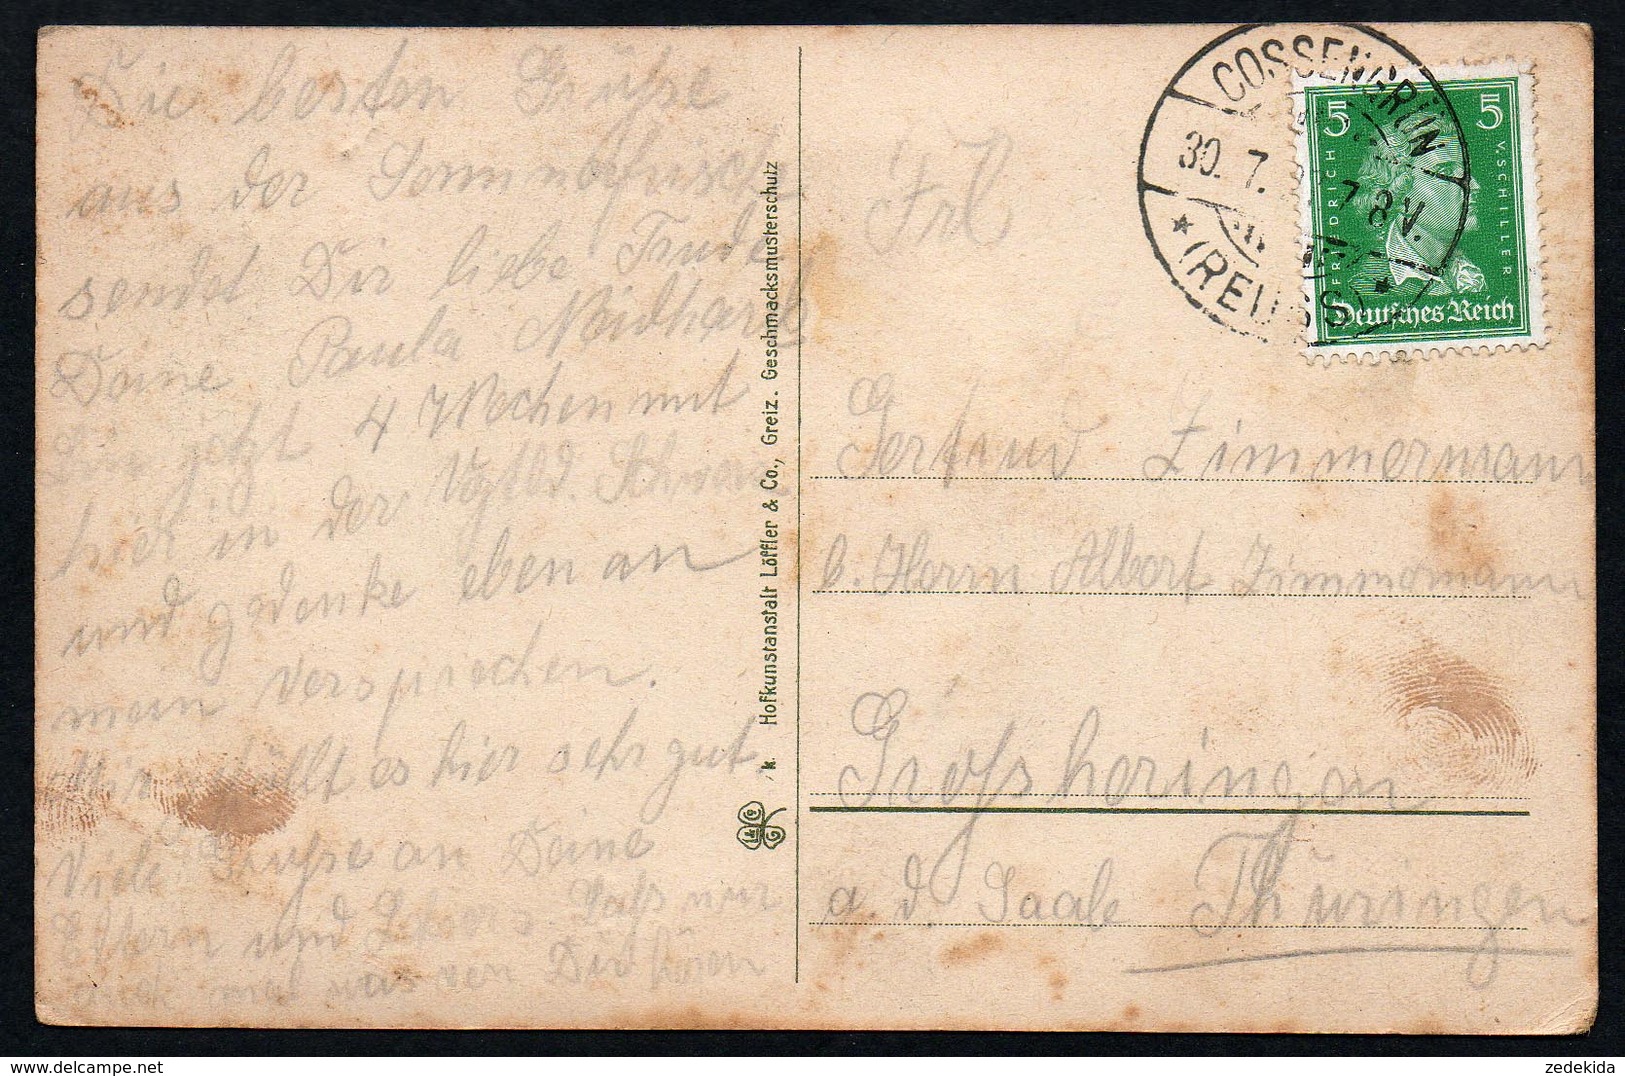 Die besten Grüße
aus der Sommerfrische
sendet Dir liebe Trude
Deine Paula Neidhard
Bin jetzt 4 Wochen mit
hier in der Vogtld. Schweiz
und gedenke eben an
mein versprechen.
Mir gefällt es hier sehr gut.
Viele Grüße an Deine
Eltern und Schwers. Laß nur
auch mal was von Dir hören
k. Hofkunstanstalt Löffler & Co., Greiz. Geschmacksmusterschutz
COSSENGRÜN
30. 7. 7 8 V.
* (REUSS) *
5 5
FRIEDRICH V. SCHILLER
Deutsches Reich
Frl
Gertrud Zimmermann
b. Herrn Albert Zimmermann
Großheringen
a. d. Saale Thüringen
zedekida